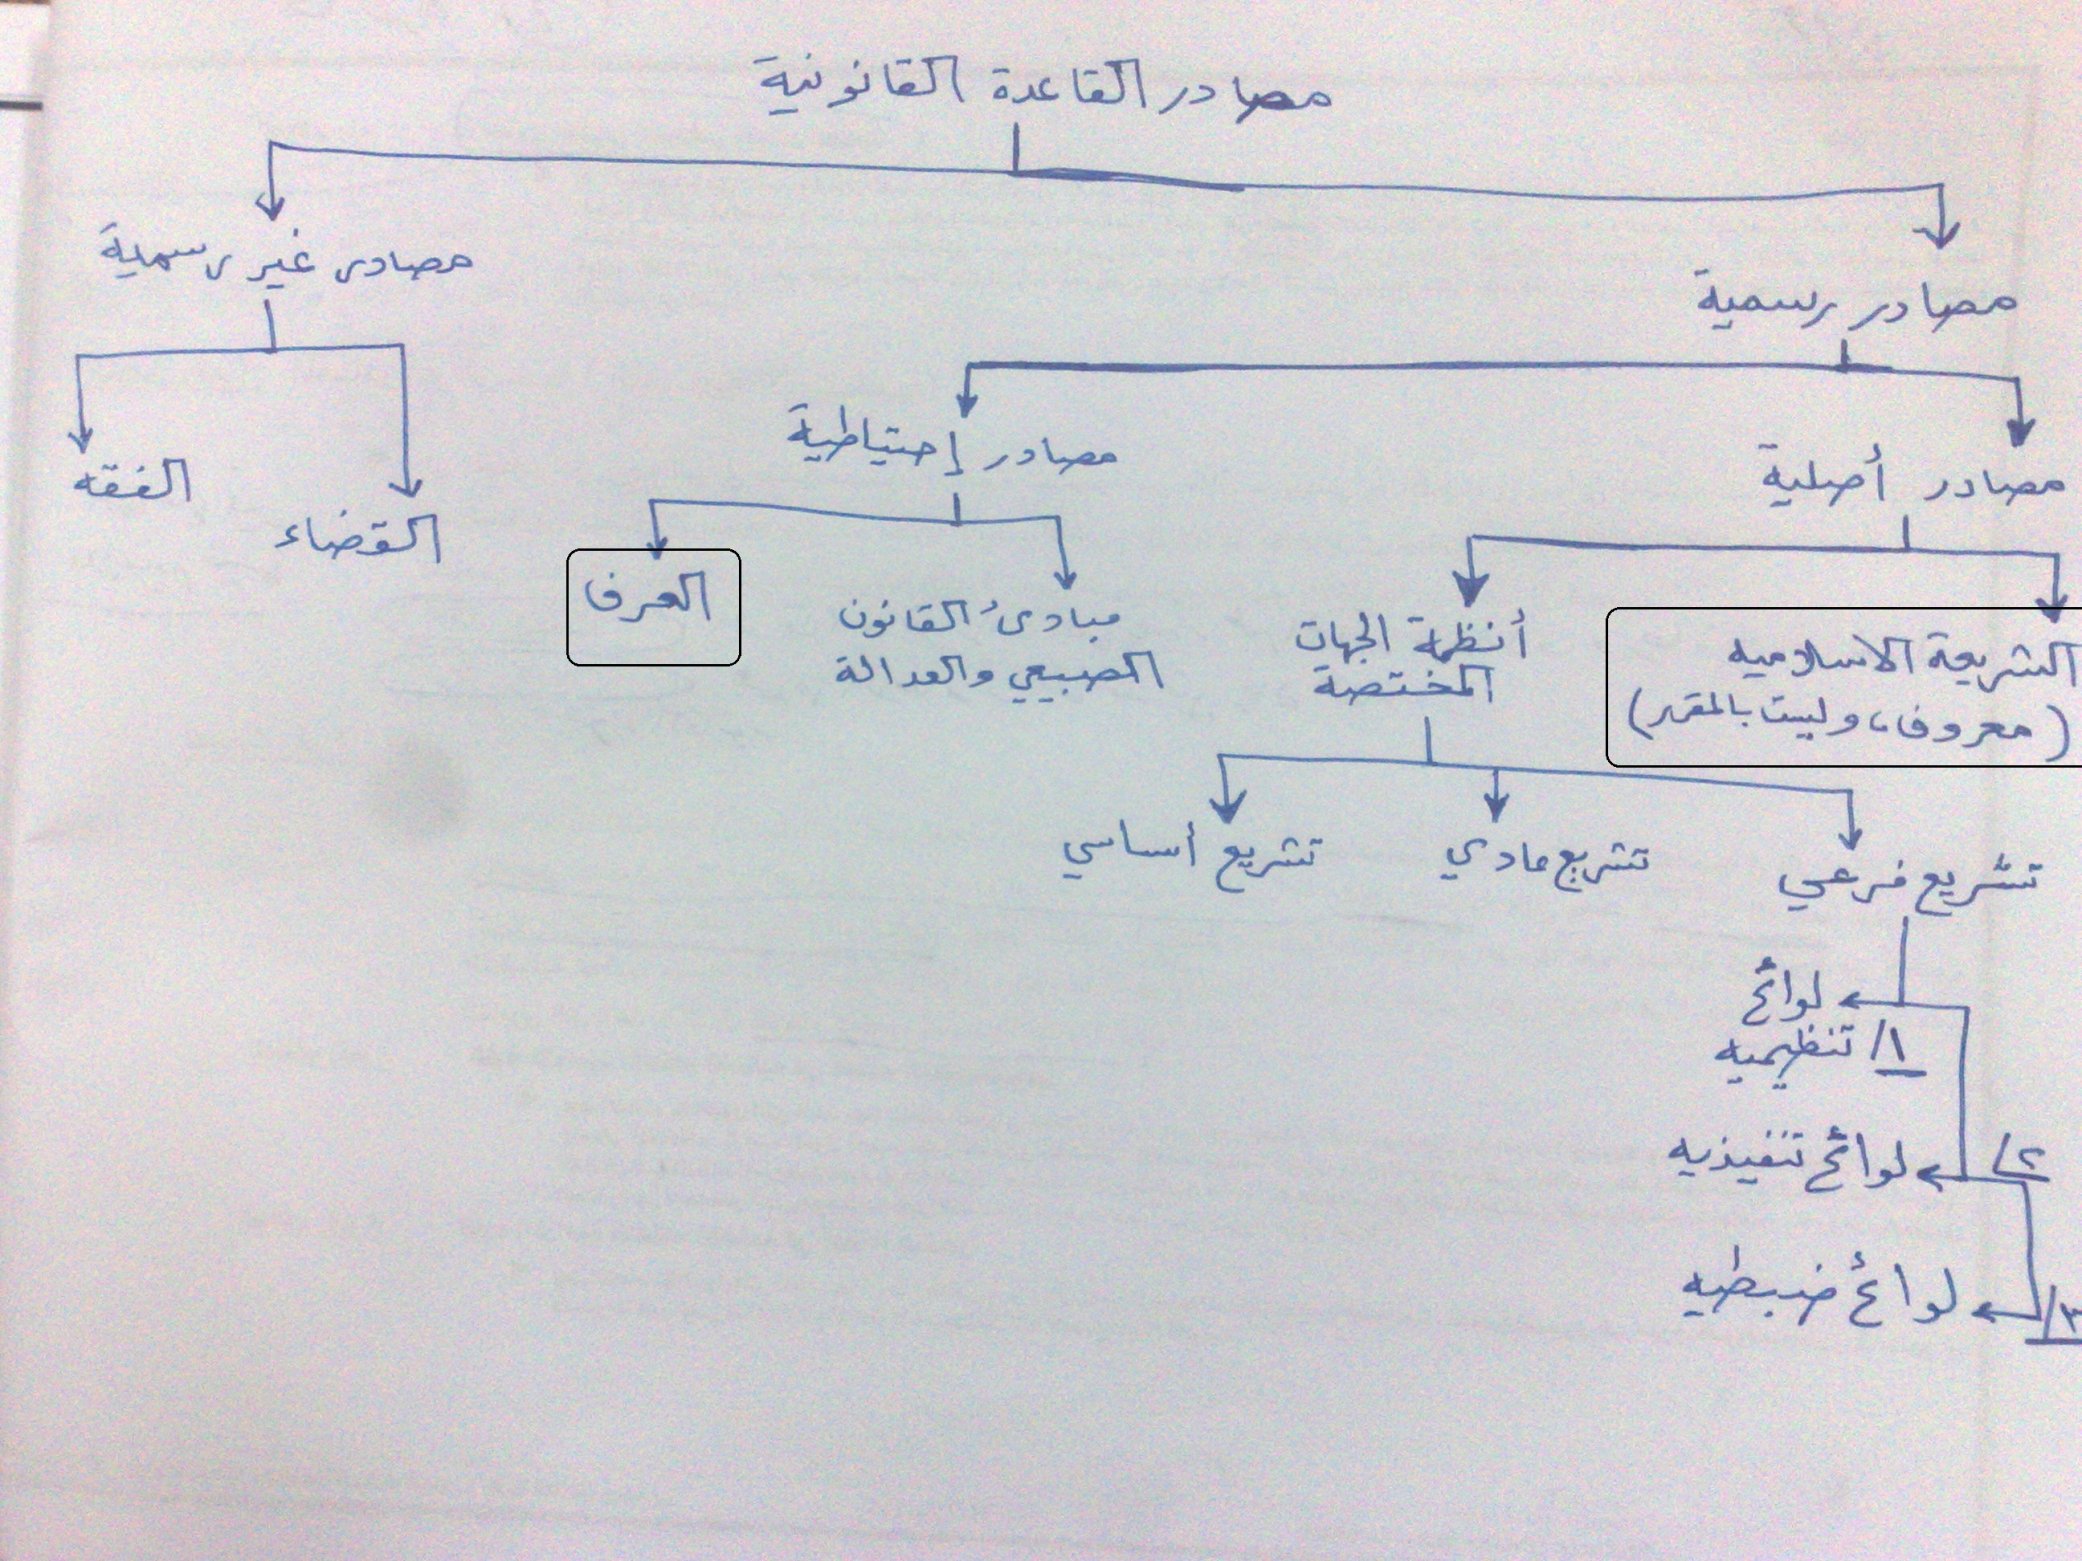 مصادر القاعدة القانونية
مصادر رسمية
مصادر غير رسمية
مصادر أصلية
مصادر إحتياطية
القضاء
الفقه
الشريعة الاسلاميه
(معروف،، وليست بالمقرر)
أنظمة الجهات
المختصة
مبادئ القانون
الصبيعي والعدالة
العرف
تشريع فرعي
تشريع عادي
تشريع أساسي
لوائح
١/ تنظيميه
٢/ لوائح تنفيذيه
٣/ لوائح ضبطيه